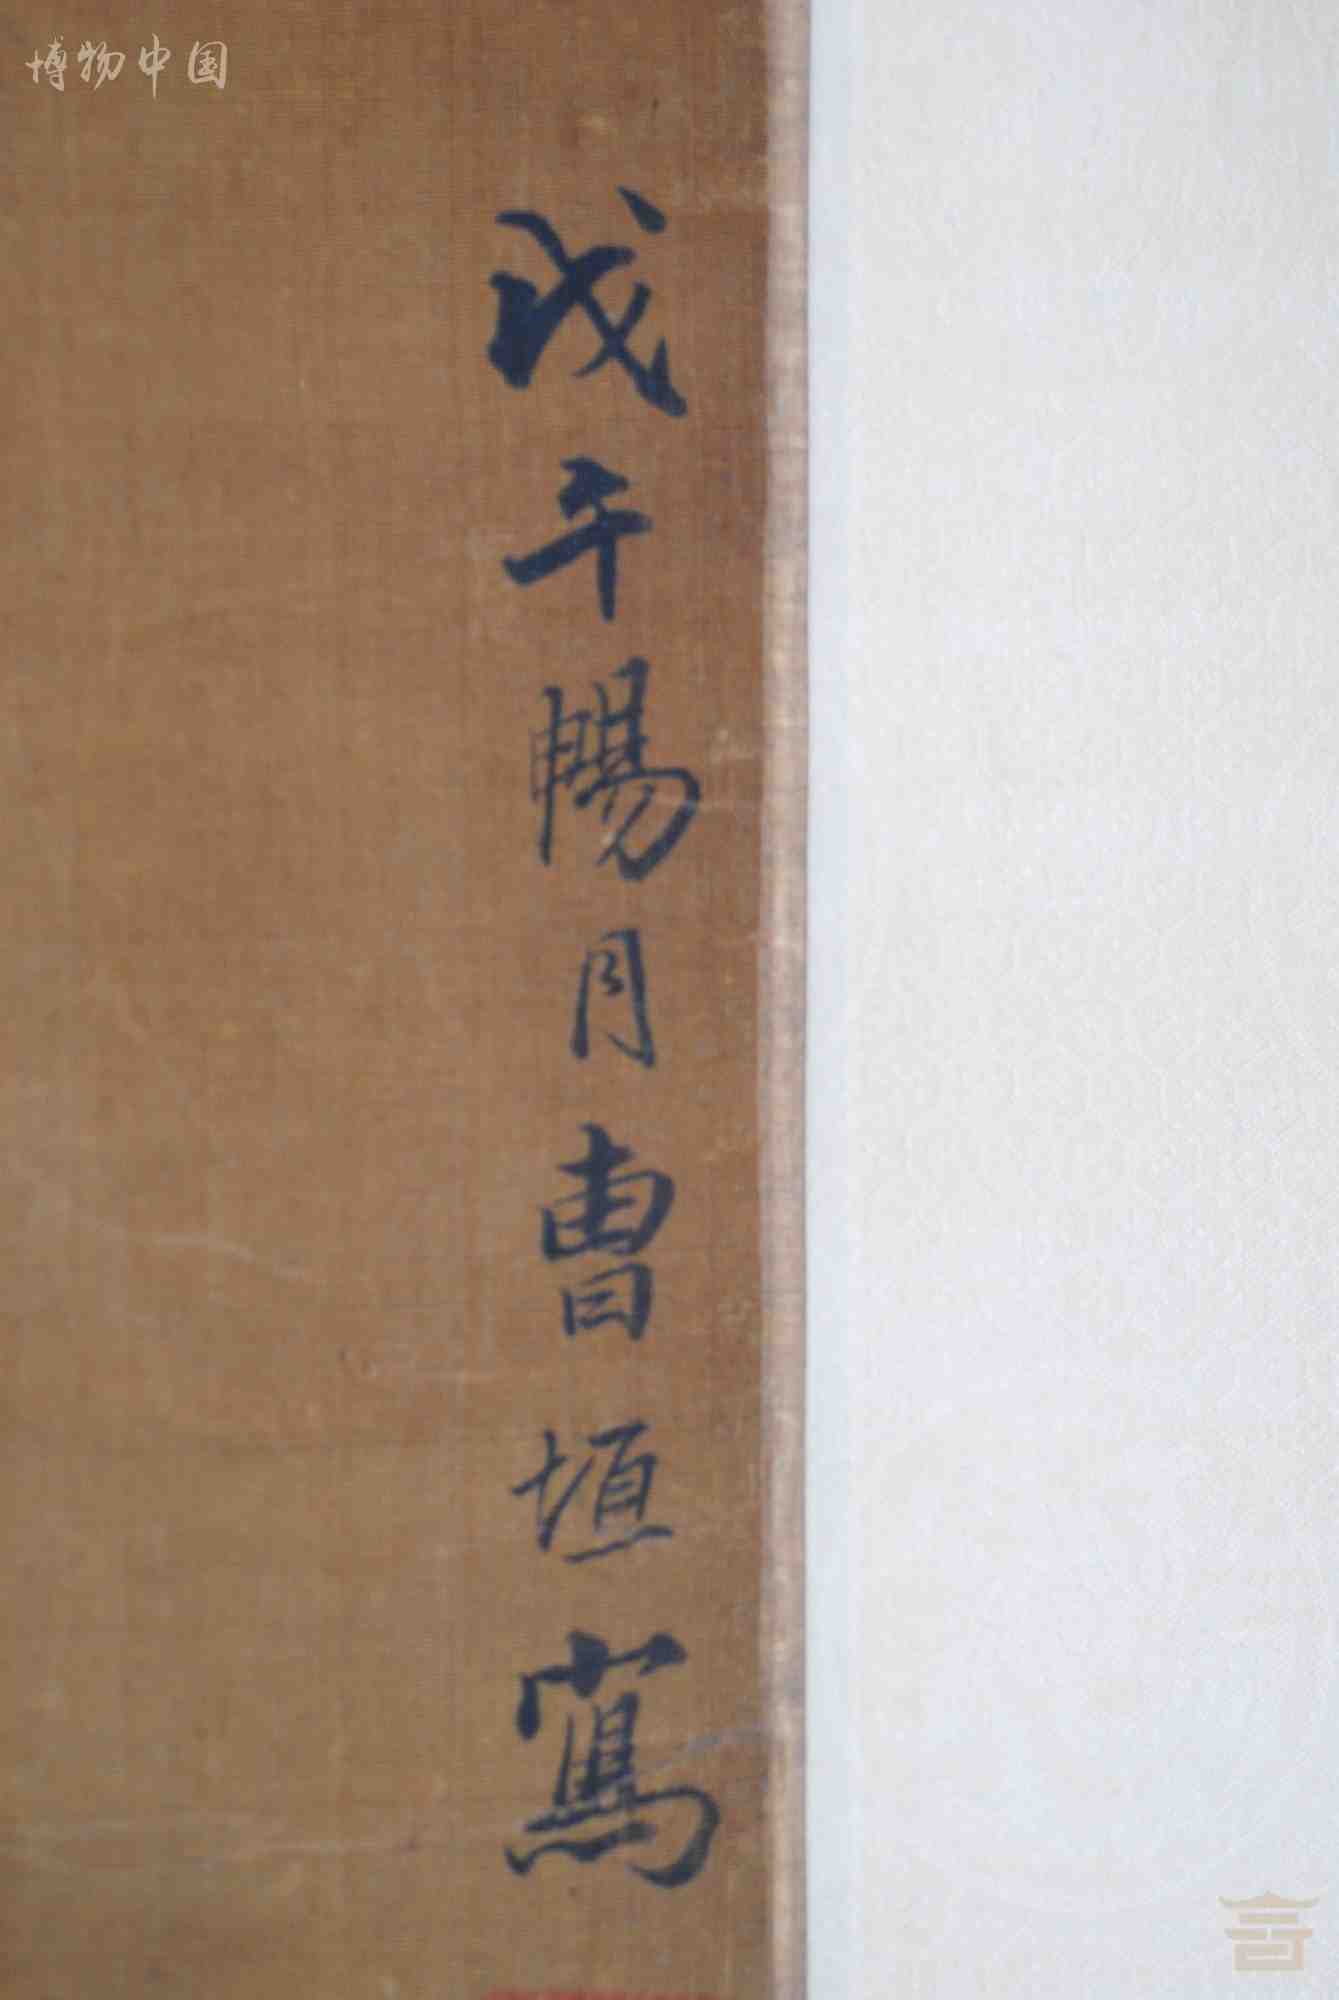 博物中国
戊午暢月曹垣寫